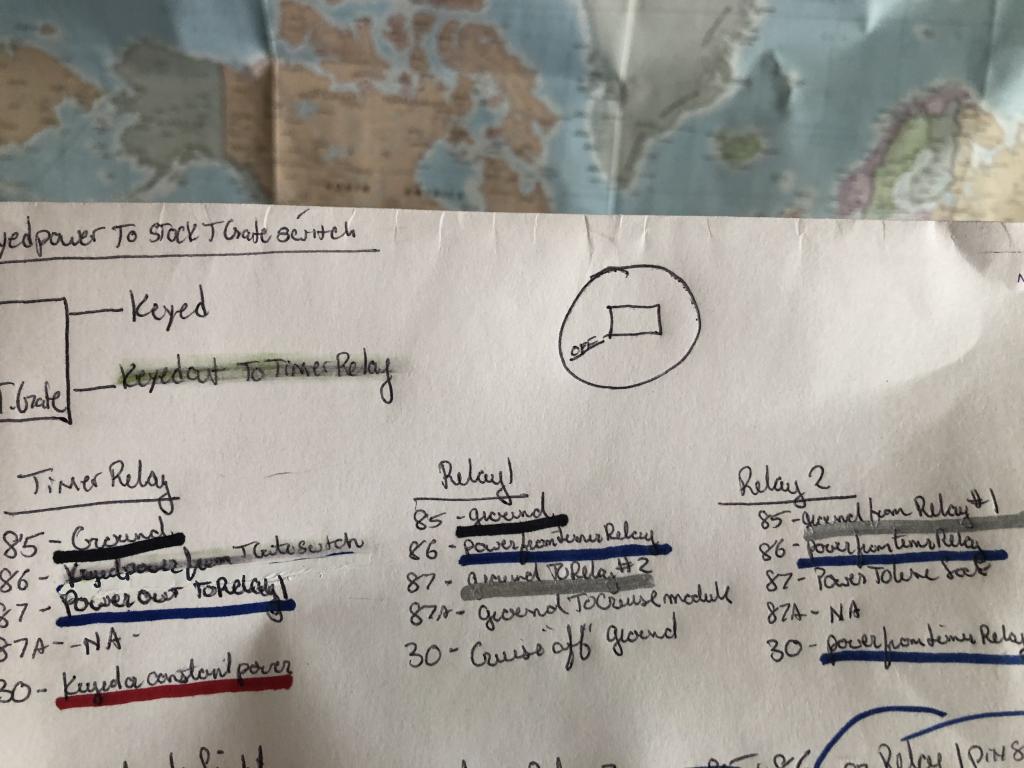 yedpower To Stock T Gate switch
Keyed
Keyedout To Timer Relay
T.Gate
OFF
Timer Relay
85 - Ground
86 - Keyedpower from TGate switch
87 - Power out To Relay 1
87A - - NA -
30 - Keyed or constant power
Relay 1
85 - ground
86 - power from timer Relay
87 - ground To Relay #2
87A - ground To Cruise module
30 - Cruise "off" ground
Relay 2
85 - ground from Relay #1
86 - power from timer Relay
87 - Power To
87A - NA
30 - power from timer Relay
Relay 1 pin 8